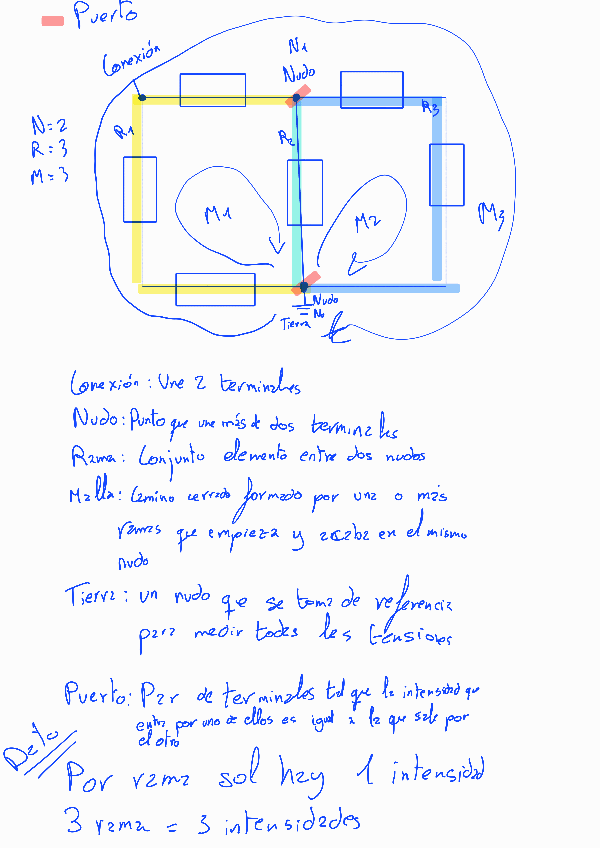 Puerto
Conexión
N1
Nudo
N=2
R=3
M=3
R1
R2
R3
M1
M2
M3
Nudo
No
Tierra
Conexión: Une 2 terminales
Nudo: Punto que une más de dos terminales
Rama: Conjunto elemento entre dos nudos
Malla: Camino cerrado formado por una o más
ramas que empieza y acaba en el mismo
nudo
Tierra: un nudo que se toma de referencia
para medir todas las tensiones
Puerto: Par de terminales tal que la intensidad que
entra por uno de ellos es igual a la que sale por
el otro
Dato
Por rama sol hay 1 intensidad
3 rama = 3 intensidades